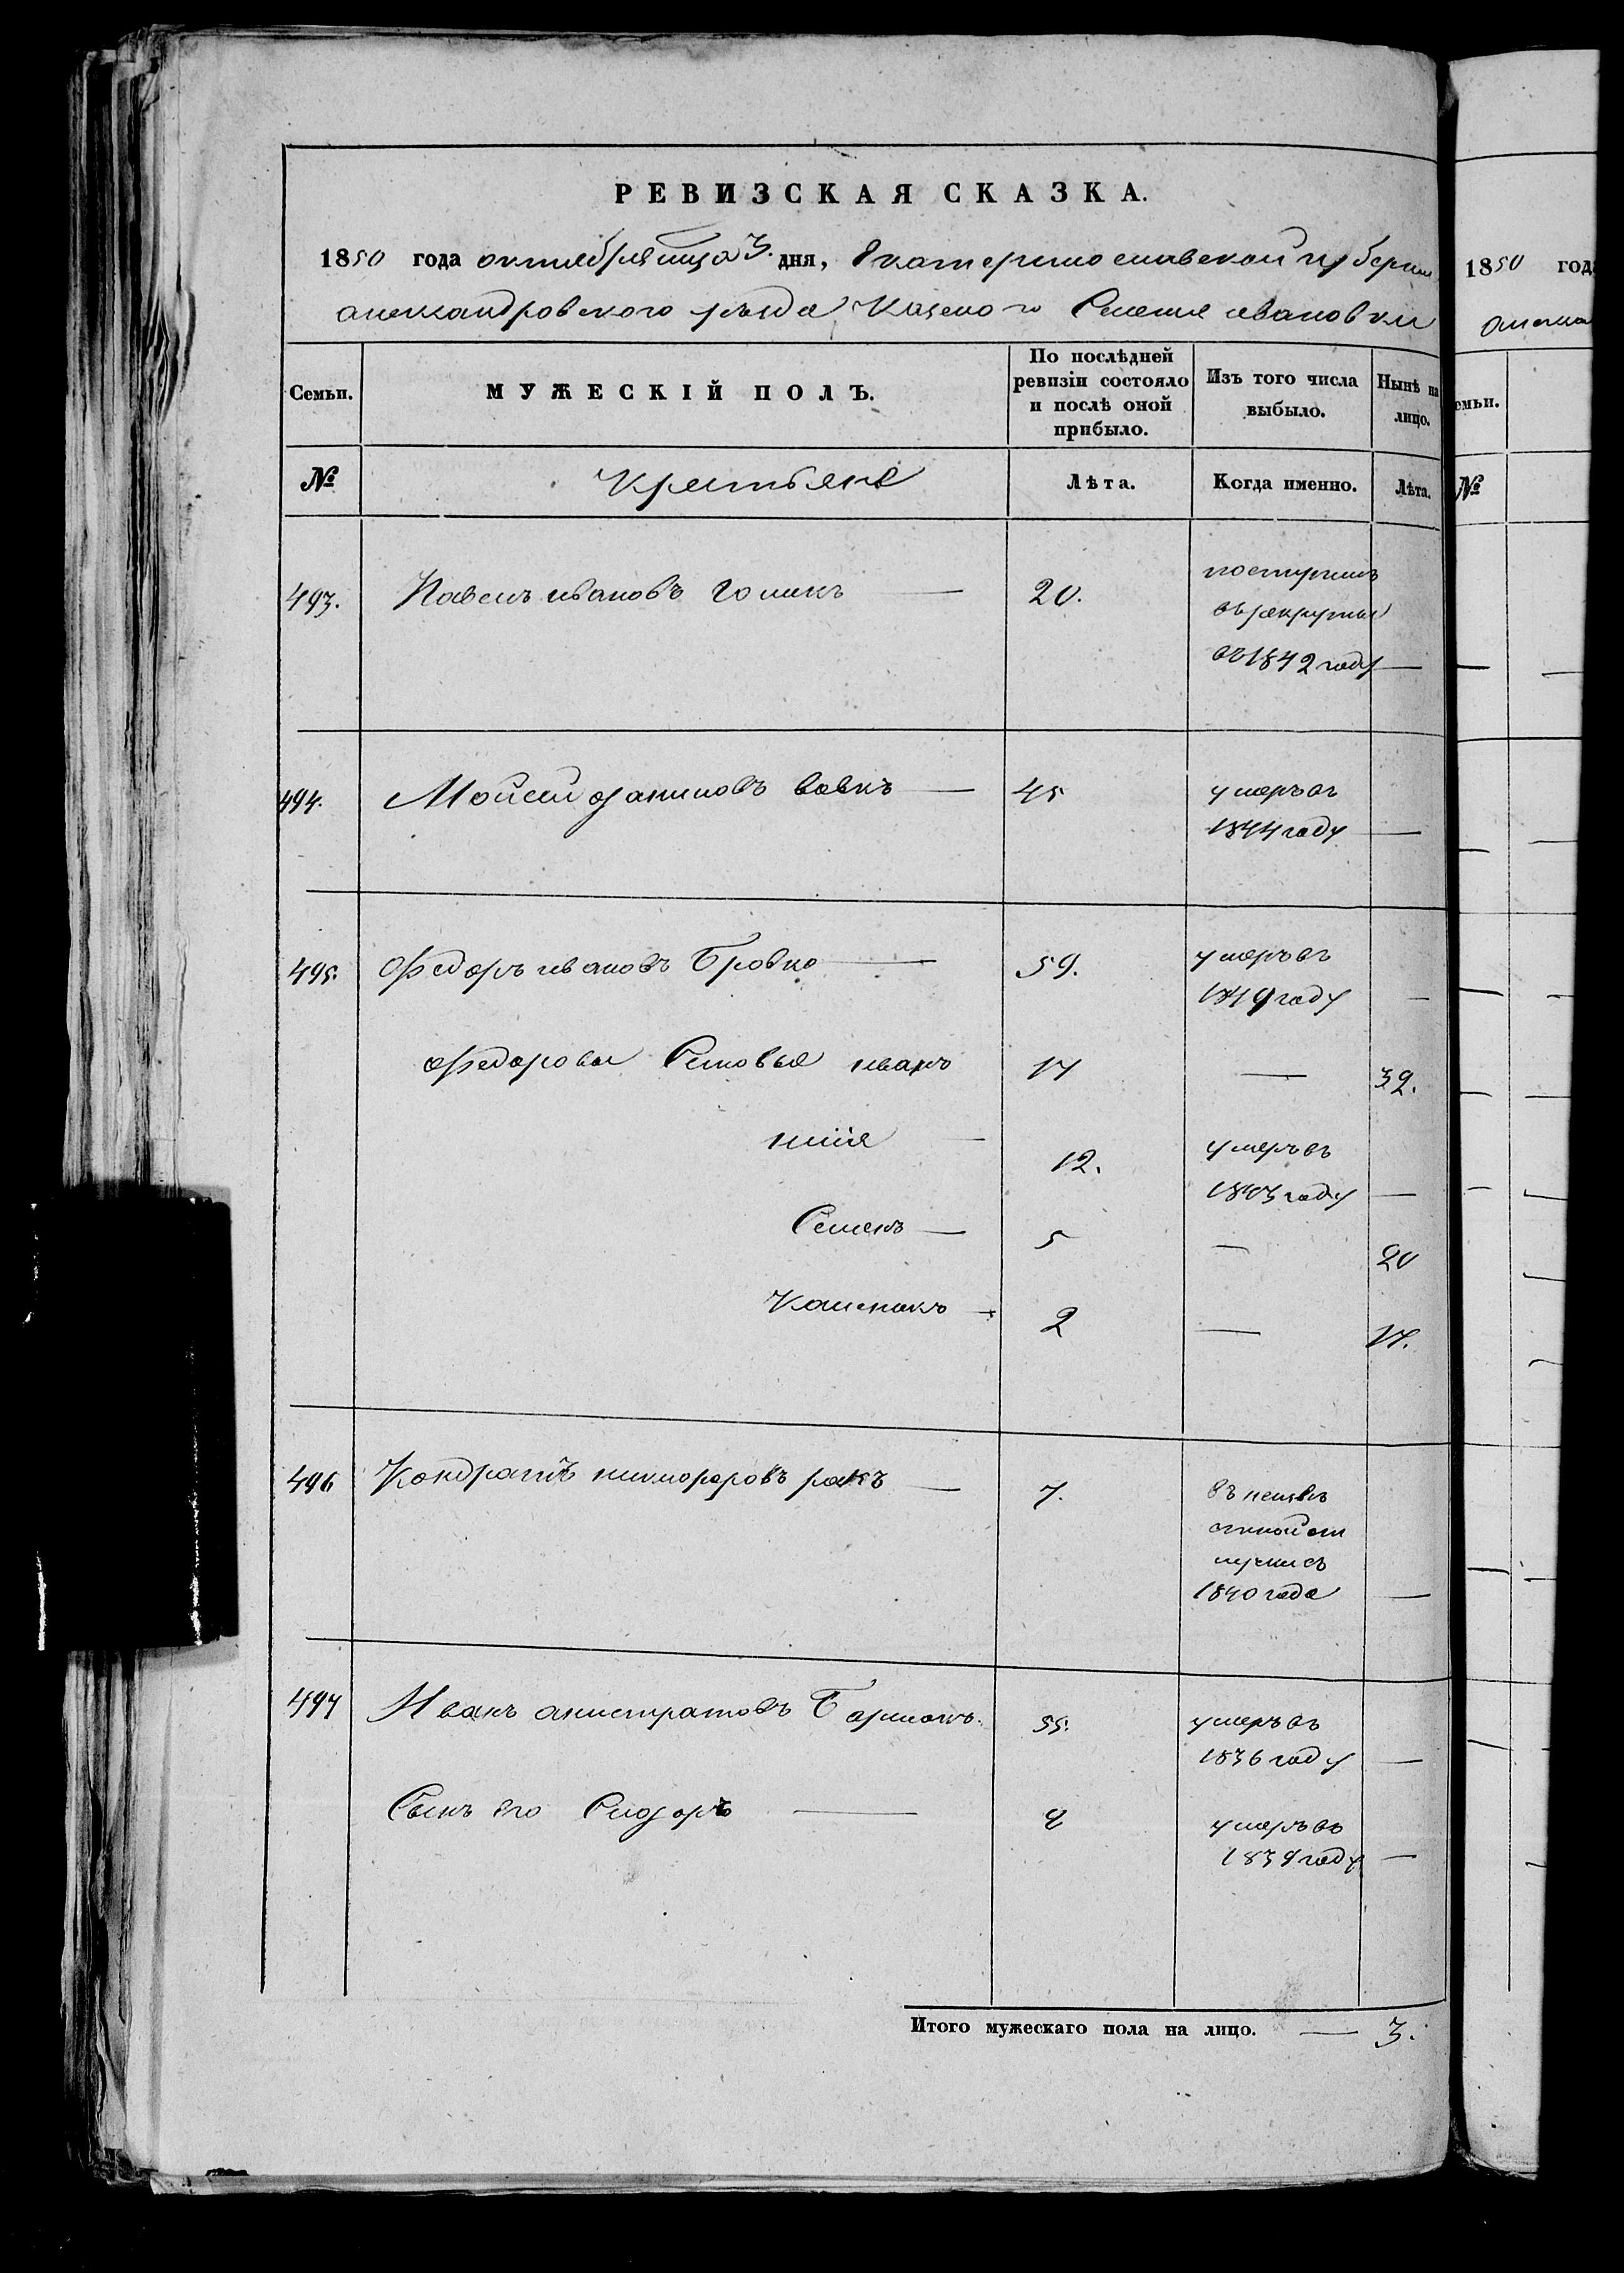 РЕВИЗСКАЯ СКАЗКА.
1850 года октября мца 3. дня, Екатеринославской губерни
александровского уезда Казеного Селения ивановки
Семьи.
МУЖЕСКІЙ ПОЛЪ.
По послѣдней ревизіи состояло и послѣ оной прибыло.
Изъ того числа выбыло.
Нынѣ на лицо.
№
Крестьяне
Лѣта.
Когда именно.
Лѣта.
493. Павелъ ивановъ 20.
поступилъ
въ рекруты
въ 1842 году —
494. Мойсей вовкъ — 45
умеръ въ
1844 году —
495. Федоръ ивановъ Бровко — 59.
умеръ въ
1849 году —
Федоровы Сыновья иванъ 17 — 32.
— 12.
умеръ въ
1843 году —
Семенъ — 5 — 20
— 2 — 17.
496 Кондратъ никифоровъ ракъ — 7.
въ неизвѣ
стной от
лучкѣ съ
1840 года —
497 Иванъ анистратовъ 55.
умеръ въ
1836 году —
Сынъ его Сидоръ —
умеръ въ
году —
Итого мужескаго пола на лицо. — 3.
1850 год
емьи.
№